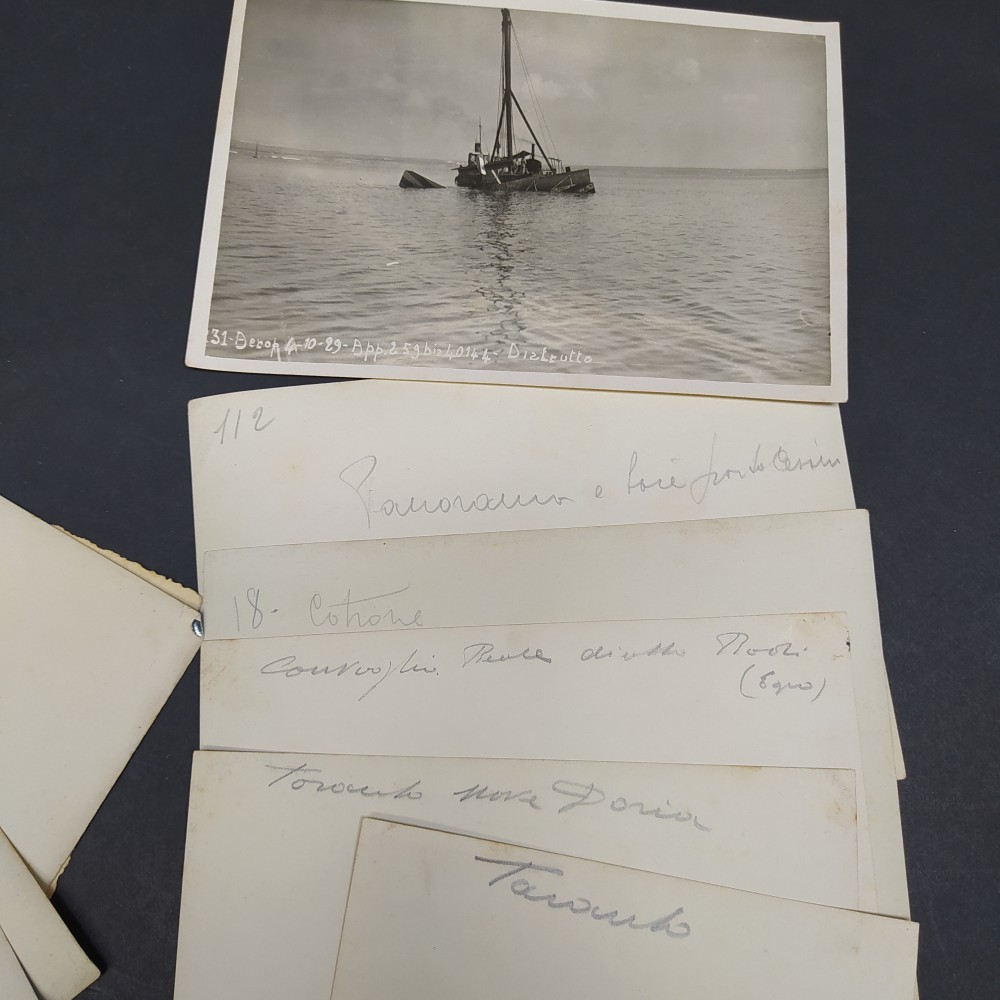 231-Aerop 4-10-29-App. S 59 bis 4,0144- Distrutto
112
Panorama e baie porto
18- Cotrone
Convoglio Reale diretto Rodi
(Egeo)
Taranto nave Doria
Taranto